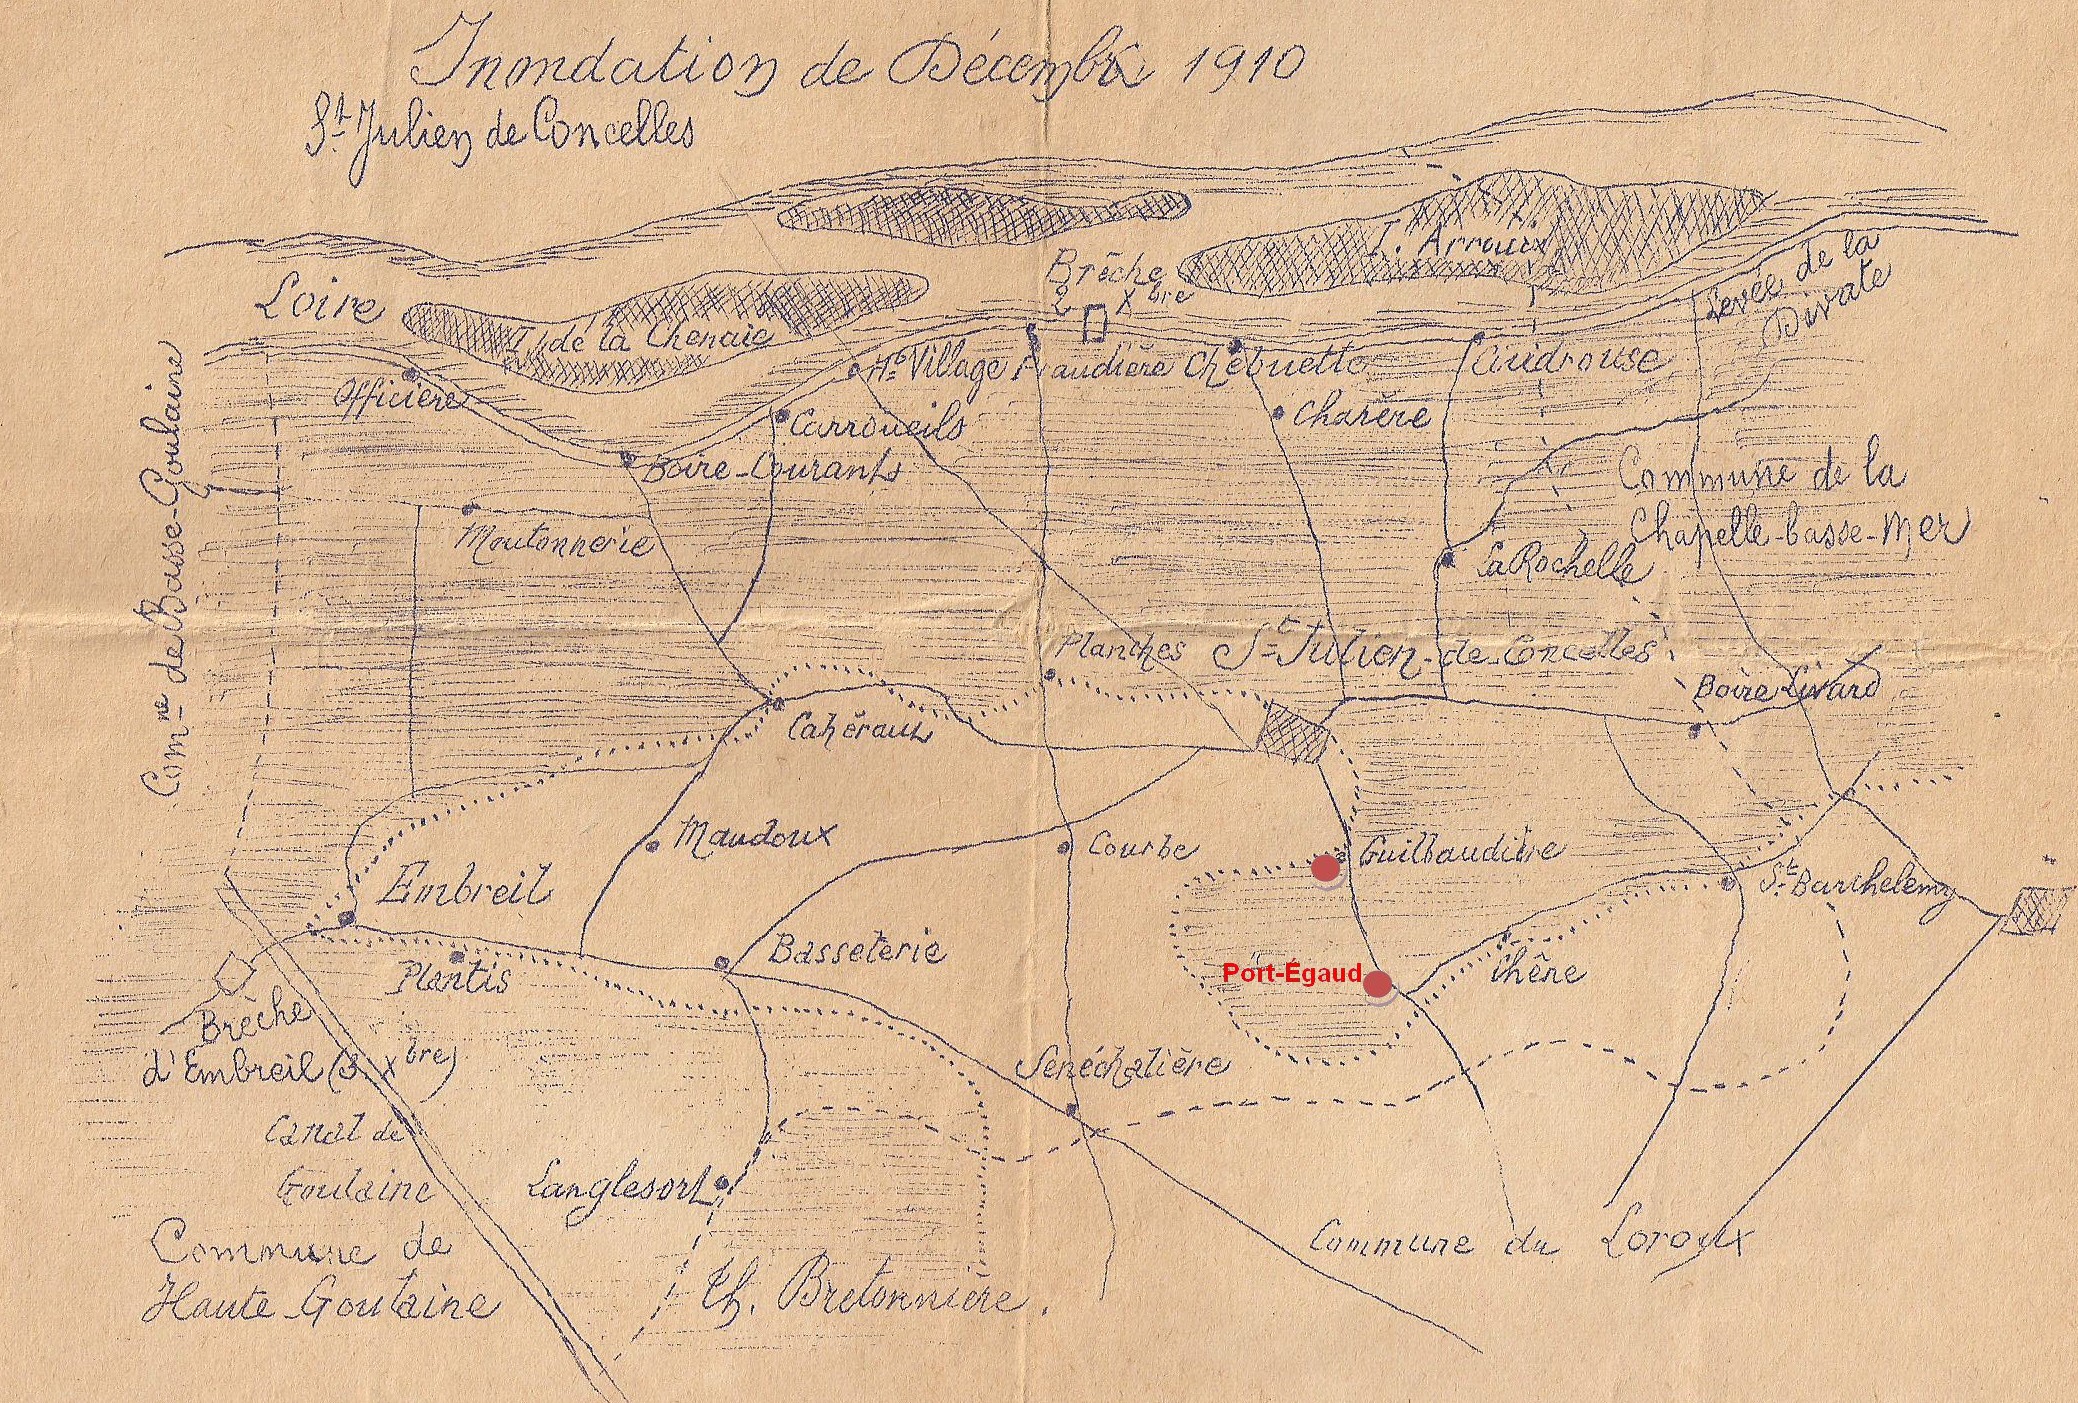 Inondation de Décembre 1910
St Julien de Concelles
Loire
I. de la Chenaie
I. Arroux
Brêche
2 Xbre
Levée de la
Divate
Officière
Hte Village
Naudière
Chebuette
Audrouse
Carroueils
Charère
Boire-Courants
Moutonnerie
Comne de Basse-Goulaine
Commune de la
Chapelle-basse-Mer
La Rochelle
Planches
St Julien-de-Concelles
Boire-Livard
Cahéraux
Maudoux
Courbe
Guilbaudière
St Barthelemy
Embreil
Plantis
Basseterie
Port-Égaud
Chêne
Brèche
d'Embreil (3 Xbre)
Sénéchalière
Canal de
Goulaine
Langlesort
Commune de
Haute-Goulaine
Ch. Bretonnière.
Commune du Loroux